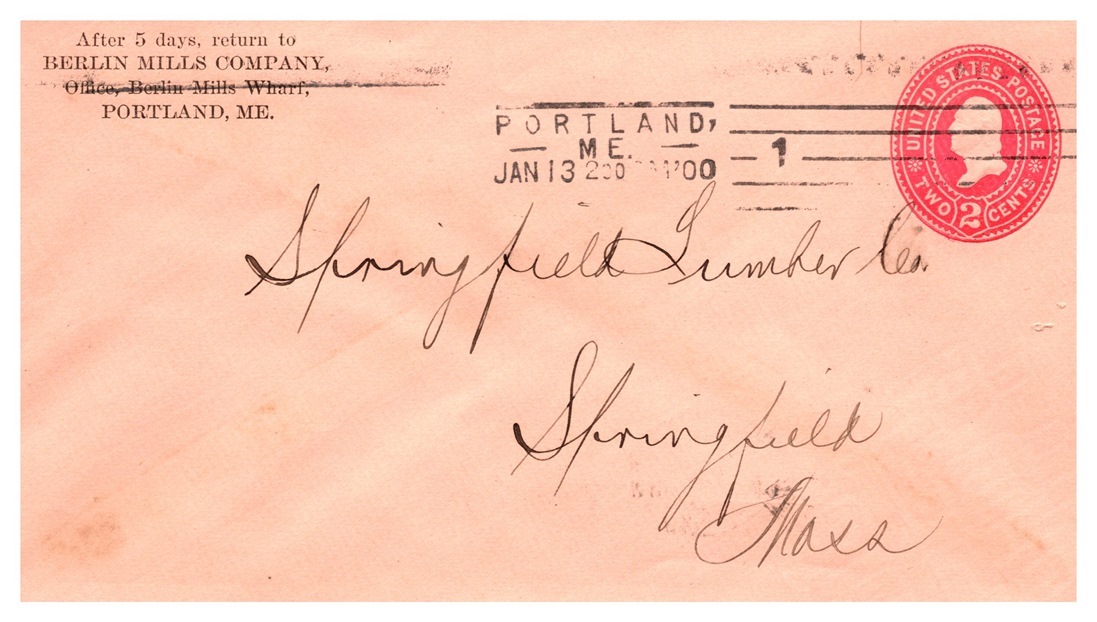 After 5 days, return to
BERLIN MILLS COMPANY,
Office, Berlin Mills Wharf,
PORTLAND, ME.
PORTLAND,
ME.
JAN 13 '00
1
UNITED STATES POSTAGE
TWO 2 CENTS
Springfield Lumber Co.
Springfield
Mass